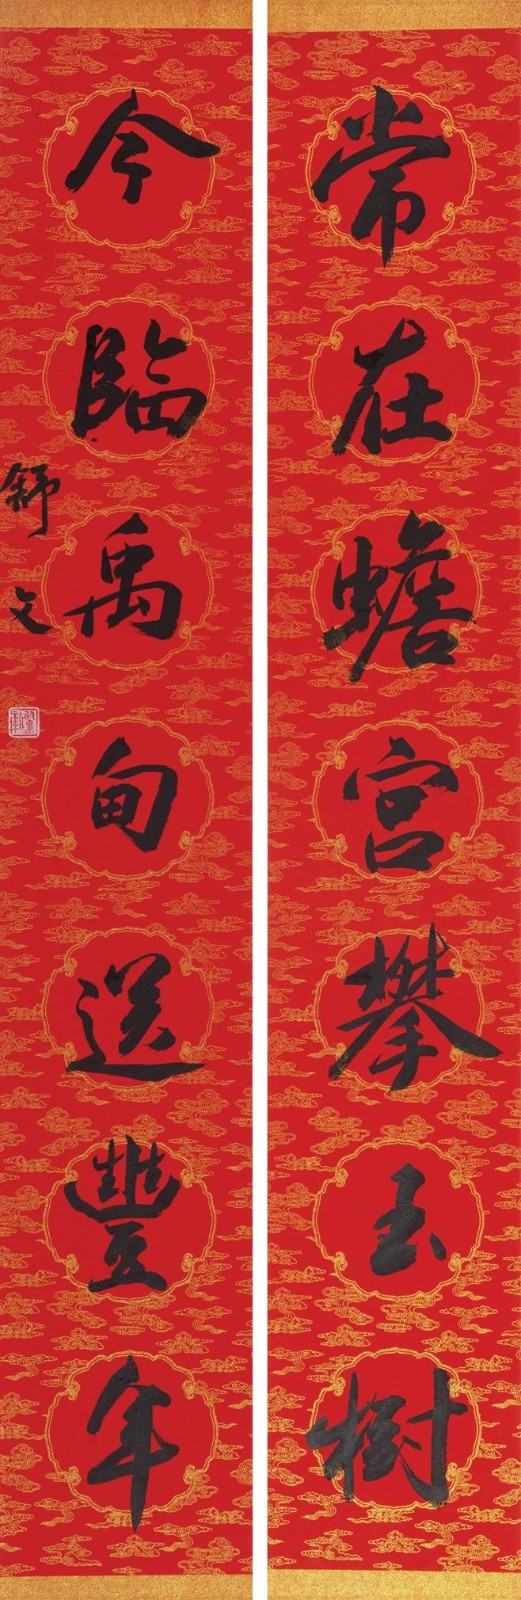 常在蟾宮攀玉樹
今臨禹甸送豐年
舒文